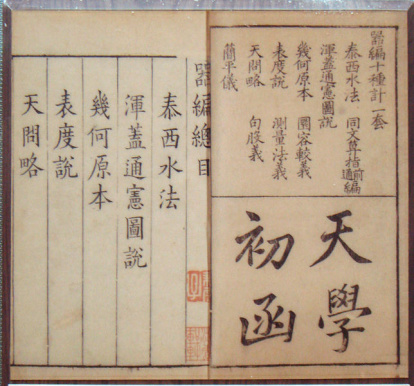 器編十種計一套
泰西水法 同文算指前編通編
渾蓋通憲圖說
幾何原本 圜容較義
表度說 測量法義
天問略 句股義
簡平儀
天學
初函
器編總目
泰西水法
渾蓋通憲圖說
幾何原本
表度說
天問略